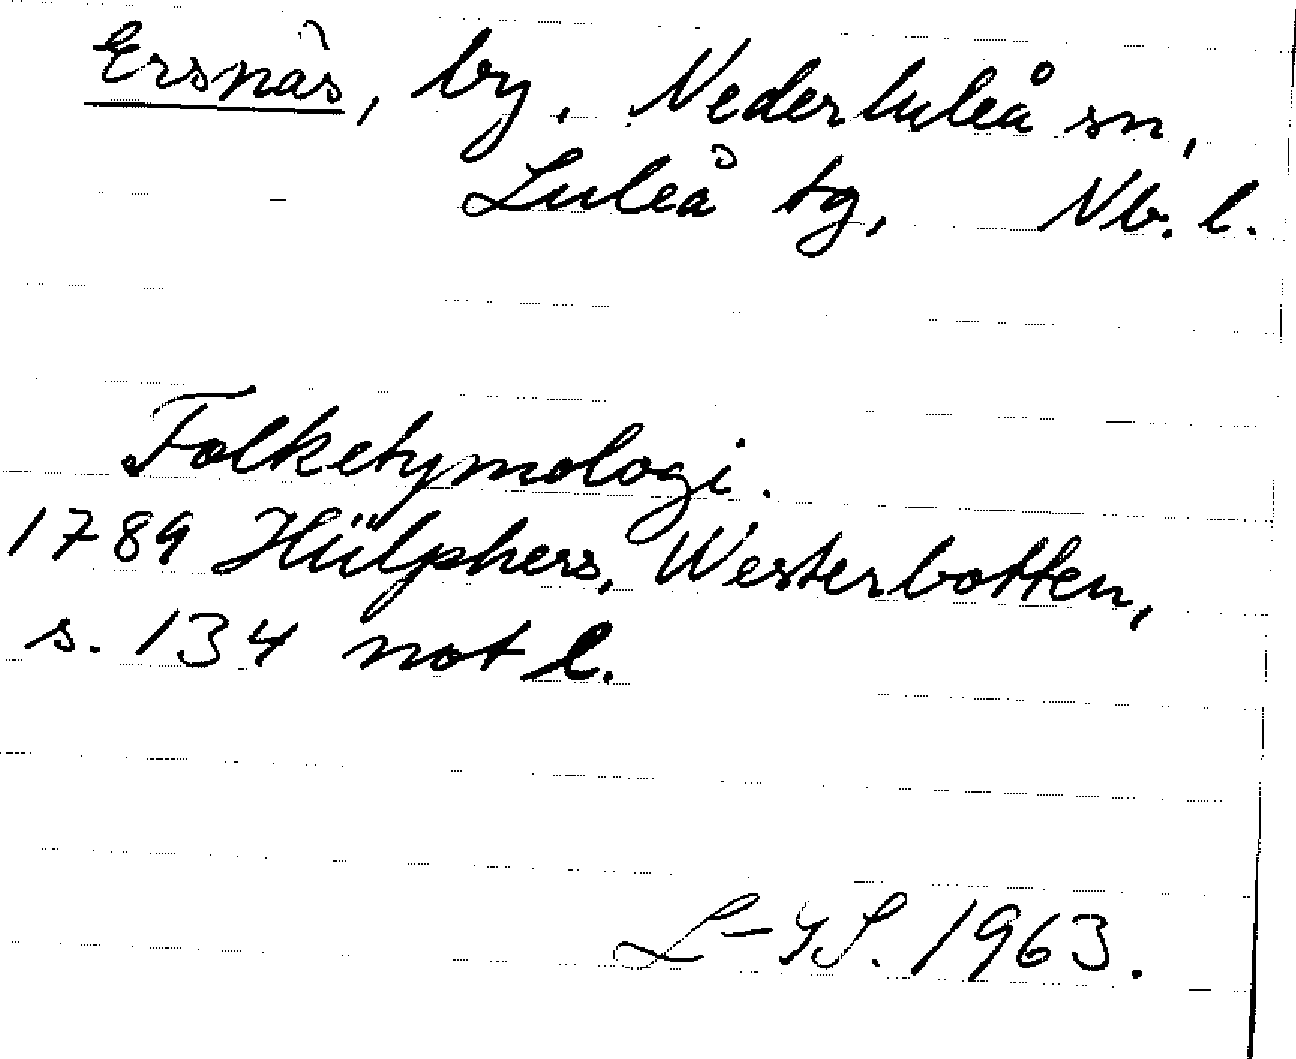 Ersnäs, by, Nederluleå sn,
Luleå tg, Nb. l.
Folketymologi.
1789 Hülphers, Westerbotten,
s. 134 not l.
1963.